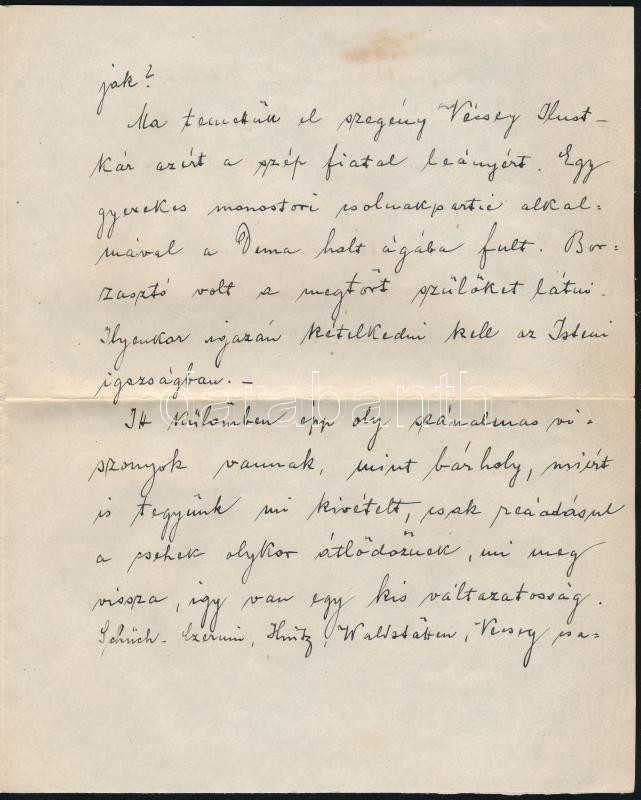 ják?
Ma temettük el szegény Vécsey Ilust –
kár azért a szép fiatal leányért. Egy
gyerekes monostori csolnakpartie alkal=
mával a Duna holt ágába fult. Bor-
zasztó volt a megtört szülőket látni.
Ilyenkor igazán kételkedni kell az Isteni
igazságban. –
Itt különben épp oly szánalmas vi-
szonyok vannak, mint bárhol, miért
is tegyünk mi kivételt, csak ráadásul
a csehek olykor átlődöznek, mi meg
vissza, így van egy kis változatosság.
Schüch- Czernin, Waldstätten, Vécsey csa=
darabanth